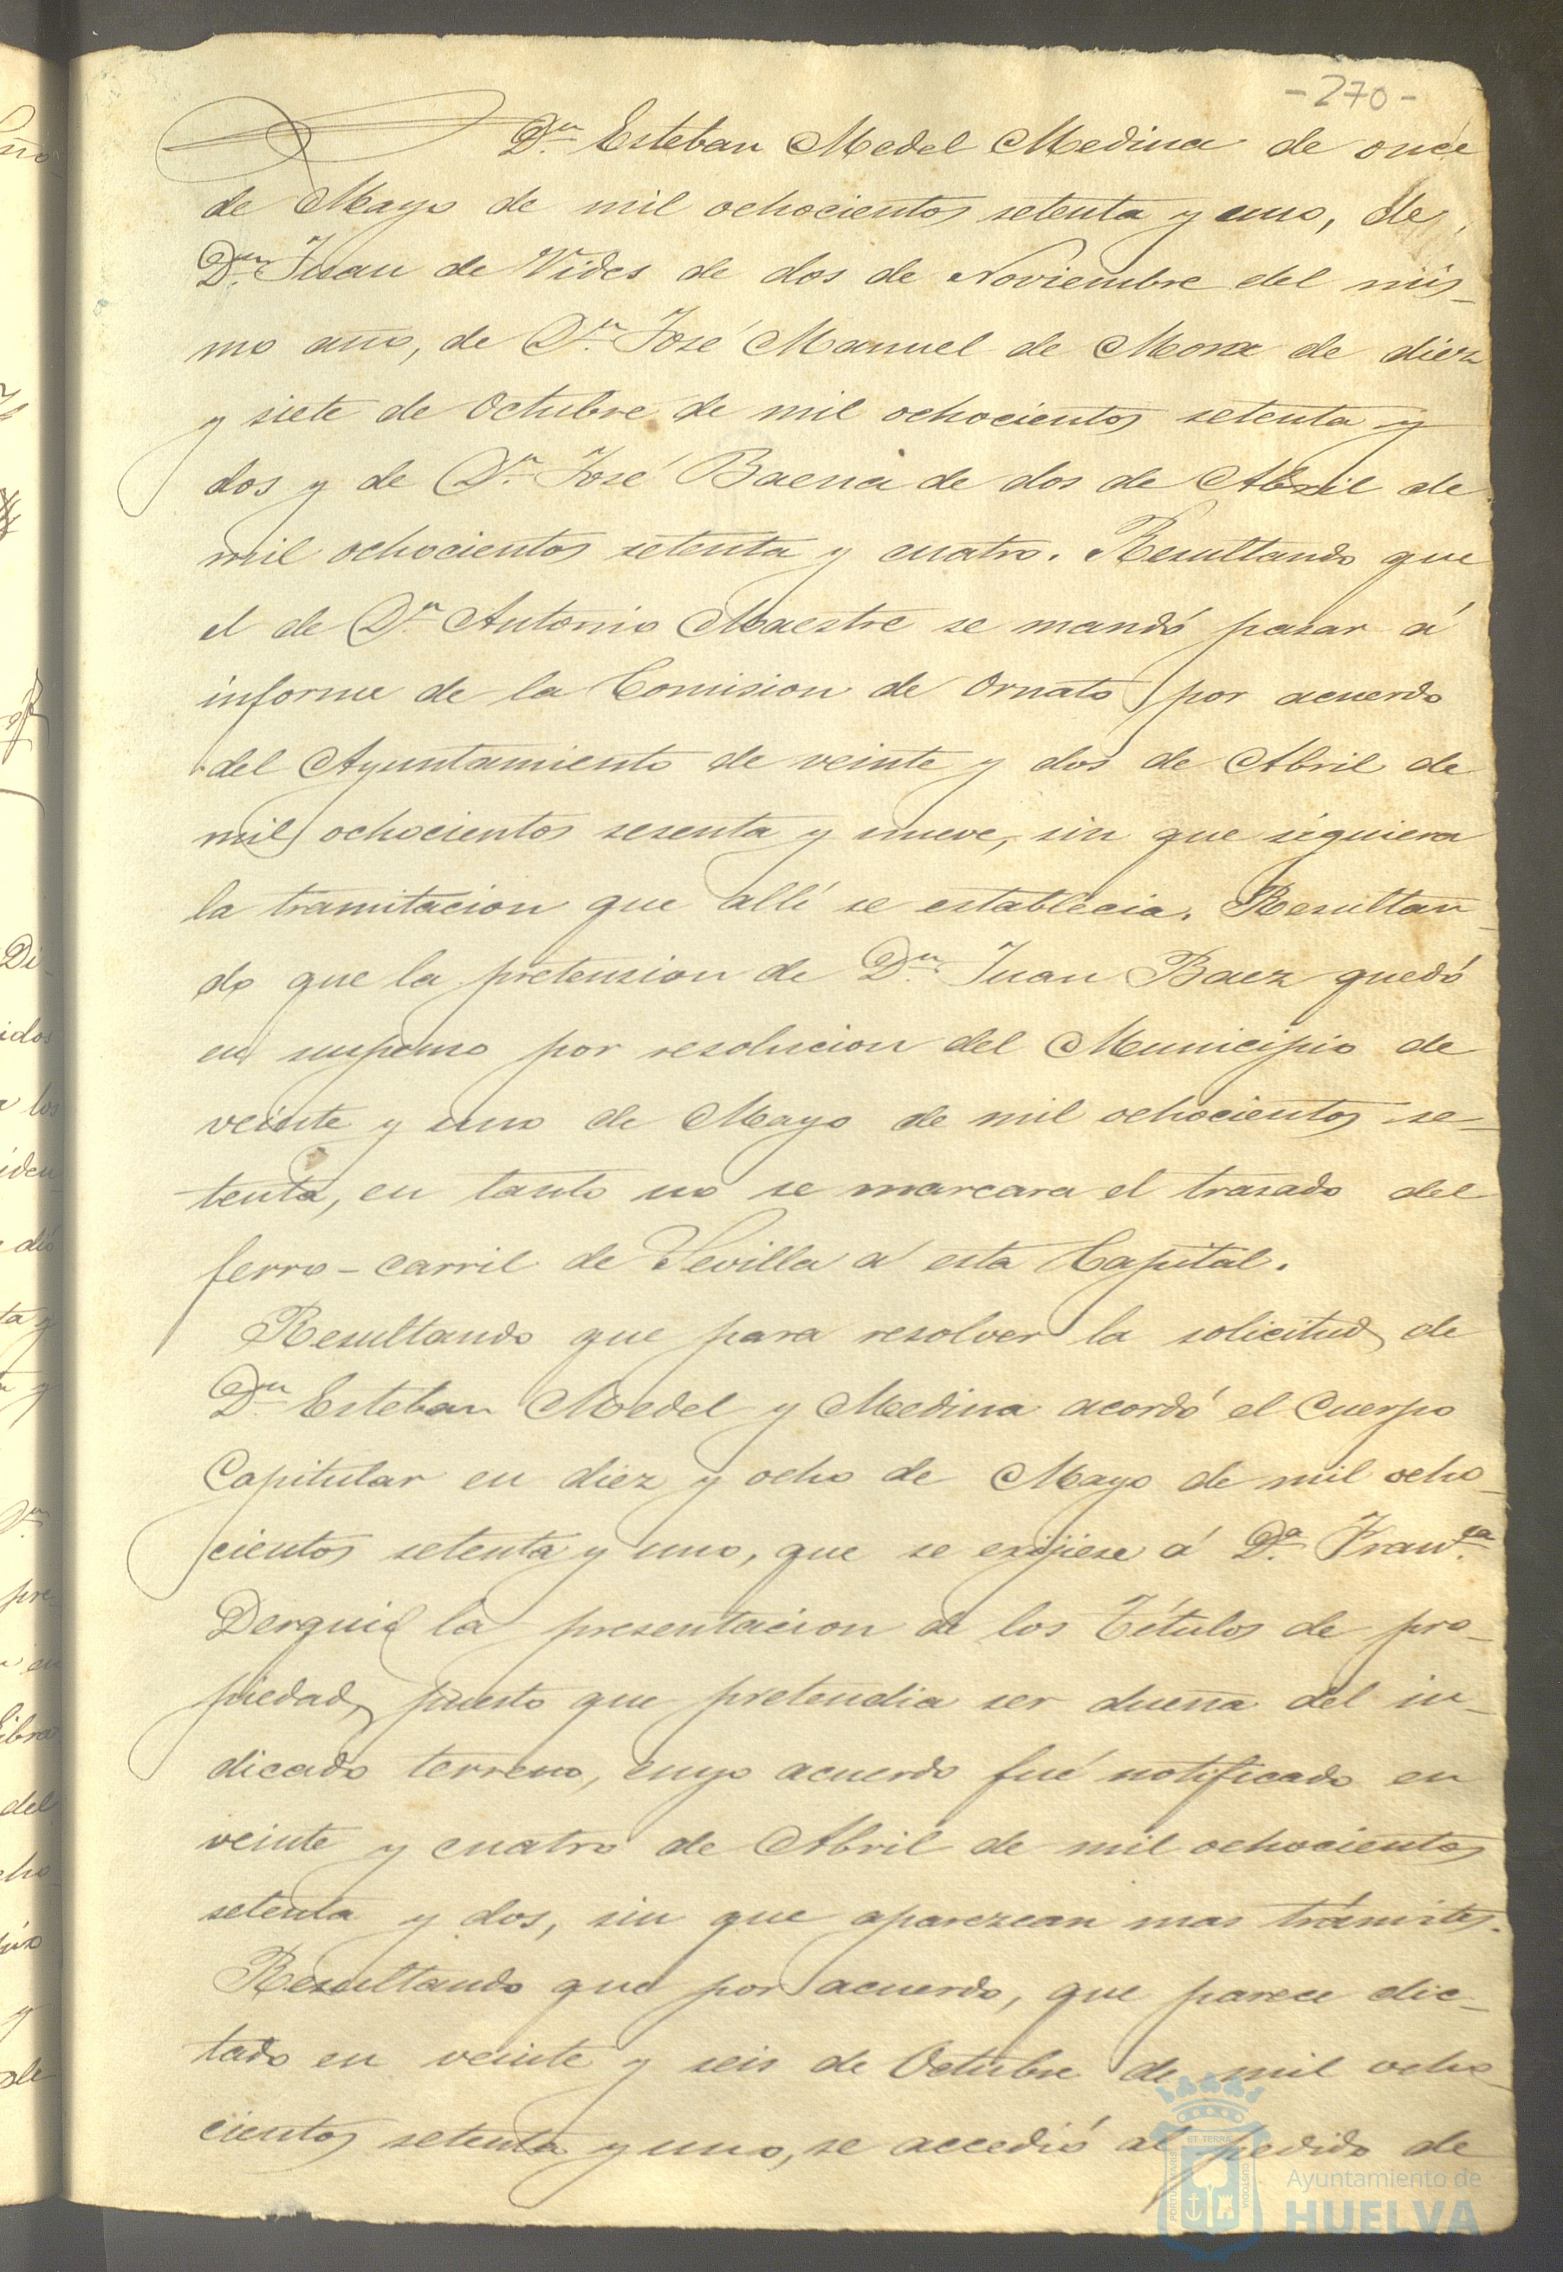 -270-
Dn. Esteban Medel Medina de once
de Mayo de mil ochocientos setenta y uno, de
Dn. Juan de Vides de dos de Noviembre del mis-
mo año, de Dn. José Manuel de Mora de diez
y siete de Octubre de mil ochocientos setenta y
dos y de Dn. José Baena de dos de Abril de
mil ochocientos setenta y cuatro. Resultando que
el de Dn. Antonio Maestre se mandó pasar á
informe de la Comision de Ornato por acuerdo
del Ayuntamiento de veinte y dos de Abril de
mil ochocientos sesenta y nueve, sin que siguiera
la tramitacion que allí se establecia. Resultan-
do que la pretension de Dn. Juan Baez quedó
en suspenso por resolucion del Municipio de
veinte y uno de Mayo de mil ochocientos se-
tenta, en tanto no se marcara el trazado del
ferro-carril de Sevilla á esta Capital.
Resultando que para resolver la solicitud de
Dn. Esteban Medel y Medina acordó el Cuerpo
Capitular en diez y ocho de Mayo de mil ocho-
cientos setenta y uno, que se exijiese á Da. Franca.
Derqui la presentacion de los Títulos de pro-
piedad, puesto que pretendia ser dueña del in-
dicado terreno, cuyo acuerdo fué notificado en
veinte y cuatro de Abril de mil ochocientos
setenta y dos, sin que aparezcan mas trámites.
Resultando que por acuerdo, que parece dic-
tado en veinte y seis de Octubre de mil ocho
cientos setenta y uno, se accedió al pedido de
Ayuntamiento de
HUELVA